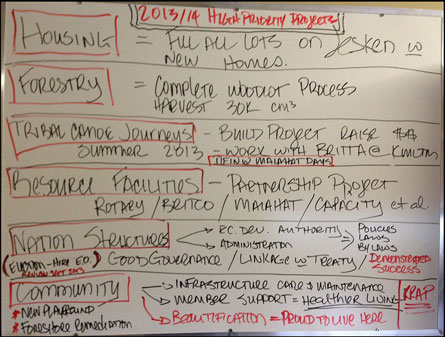 2013/14 High Priority Projects
Housing = Fill all lots on Jesken w
New Homes.
Forestry = Complete Woodlot Process
Harvest 30K cm³
Tribal Canoe Journeys - Build Project Raise $$
Summer 2013 - Work with Britta @
Malahat Days
Resource Facilities - Partnership Project
Rotary / Britco / Malahat / Capacity et al
Nation Structures → Ec. Dev. Authority → Policies
→ Administration → Laws
→ By Laws
(Election - Hire EO) Good Governance / Linkage w Treaty / Demonstrated
Sept 2013 Success
Community → Infrastructure Care & Maintenance
→ Member Support = Healthier Living
* New Playground
* Foreshore Remediation → Beautification = Proud to Live Here